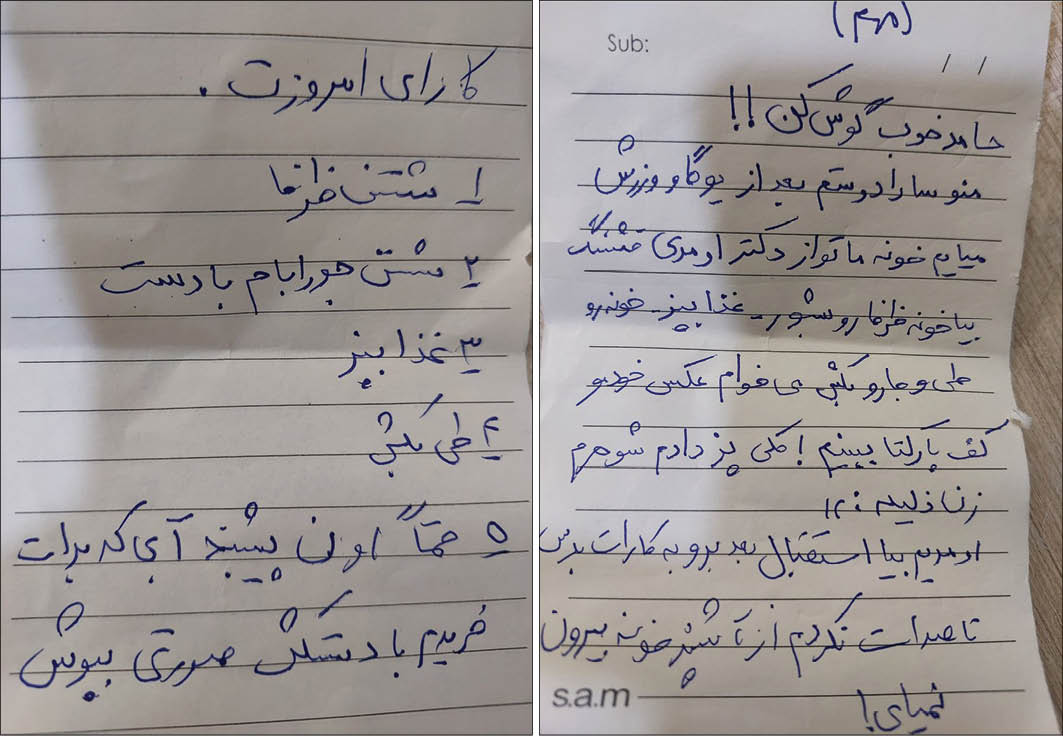 کارای امروزت .
۱ شستن ظرفا
۲ شستن جورابام با دست
۳ غذا بپز
۴ طی بکش
۵ حتماً اون پیشبند آبی که برات
خریدم با دستکش صورتی بپوش
(مهم)
Sub: / /
حامد خوب گوش کن !!
منو سارا دوستم بعد از یوگا و ورزش
میایم خونه ما تو از دکتر اومدی قشنگ
بیا خونه ظرفا رو بشور - غذا بپز - خونه رو
طی و جارو بکش می خوام عکس خودمو
کف پارکتا ببینم ! کلی پز دادم شوهرم
زن ذلیله :
اومدیم بیا استقبال بعد برو به کارات برس
تا صدات نکردم از آشپزخونه بیرون
نمیای !
s.a.m